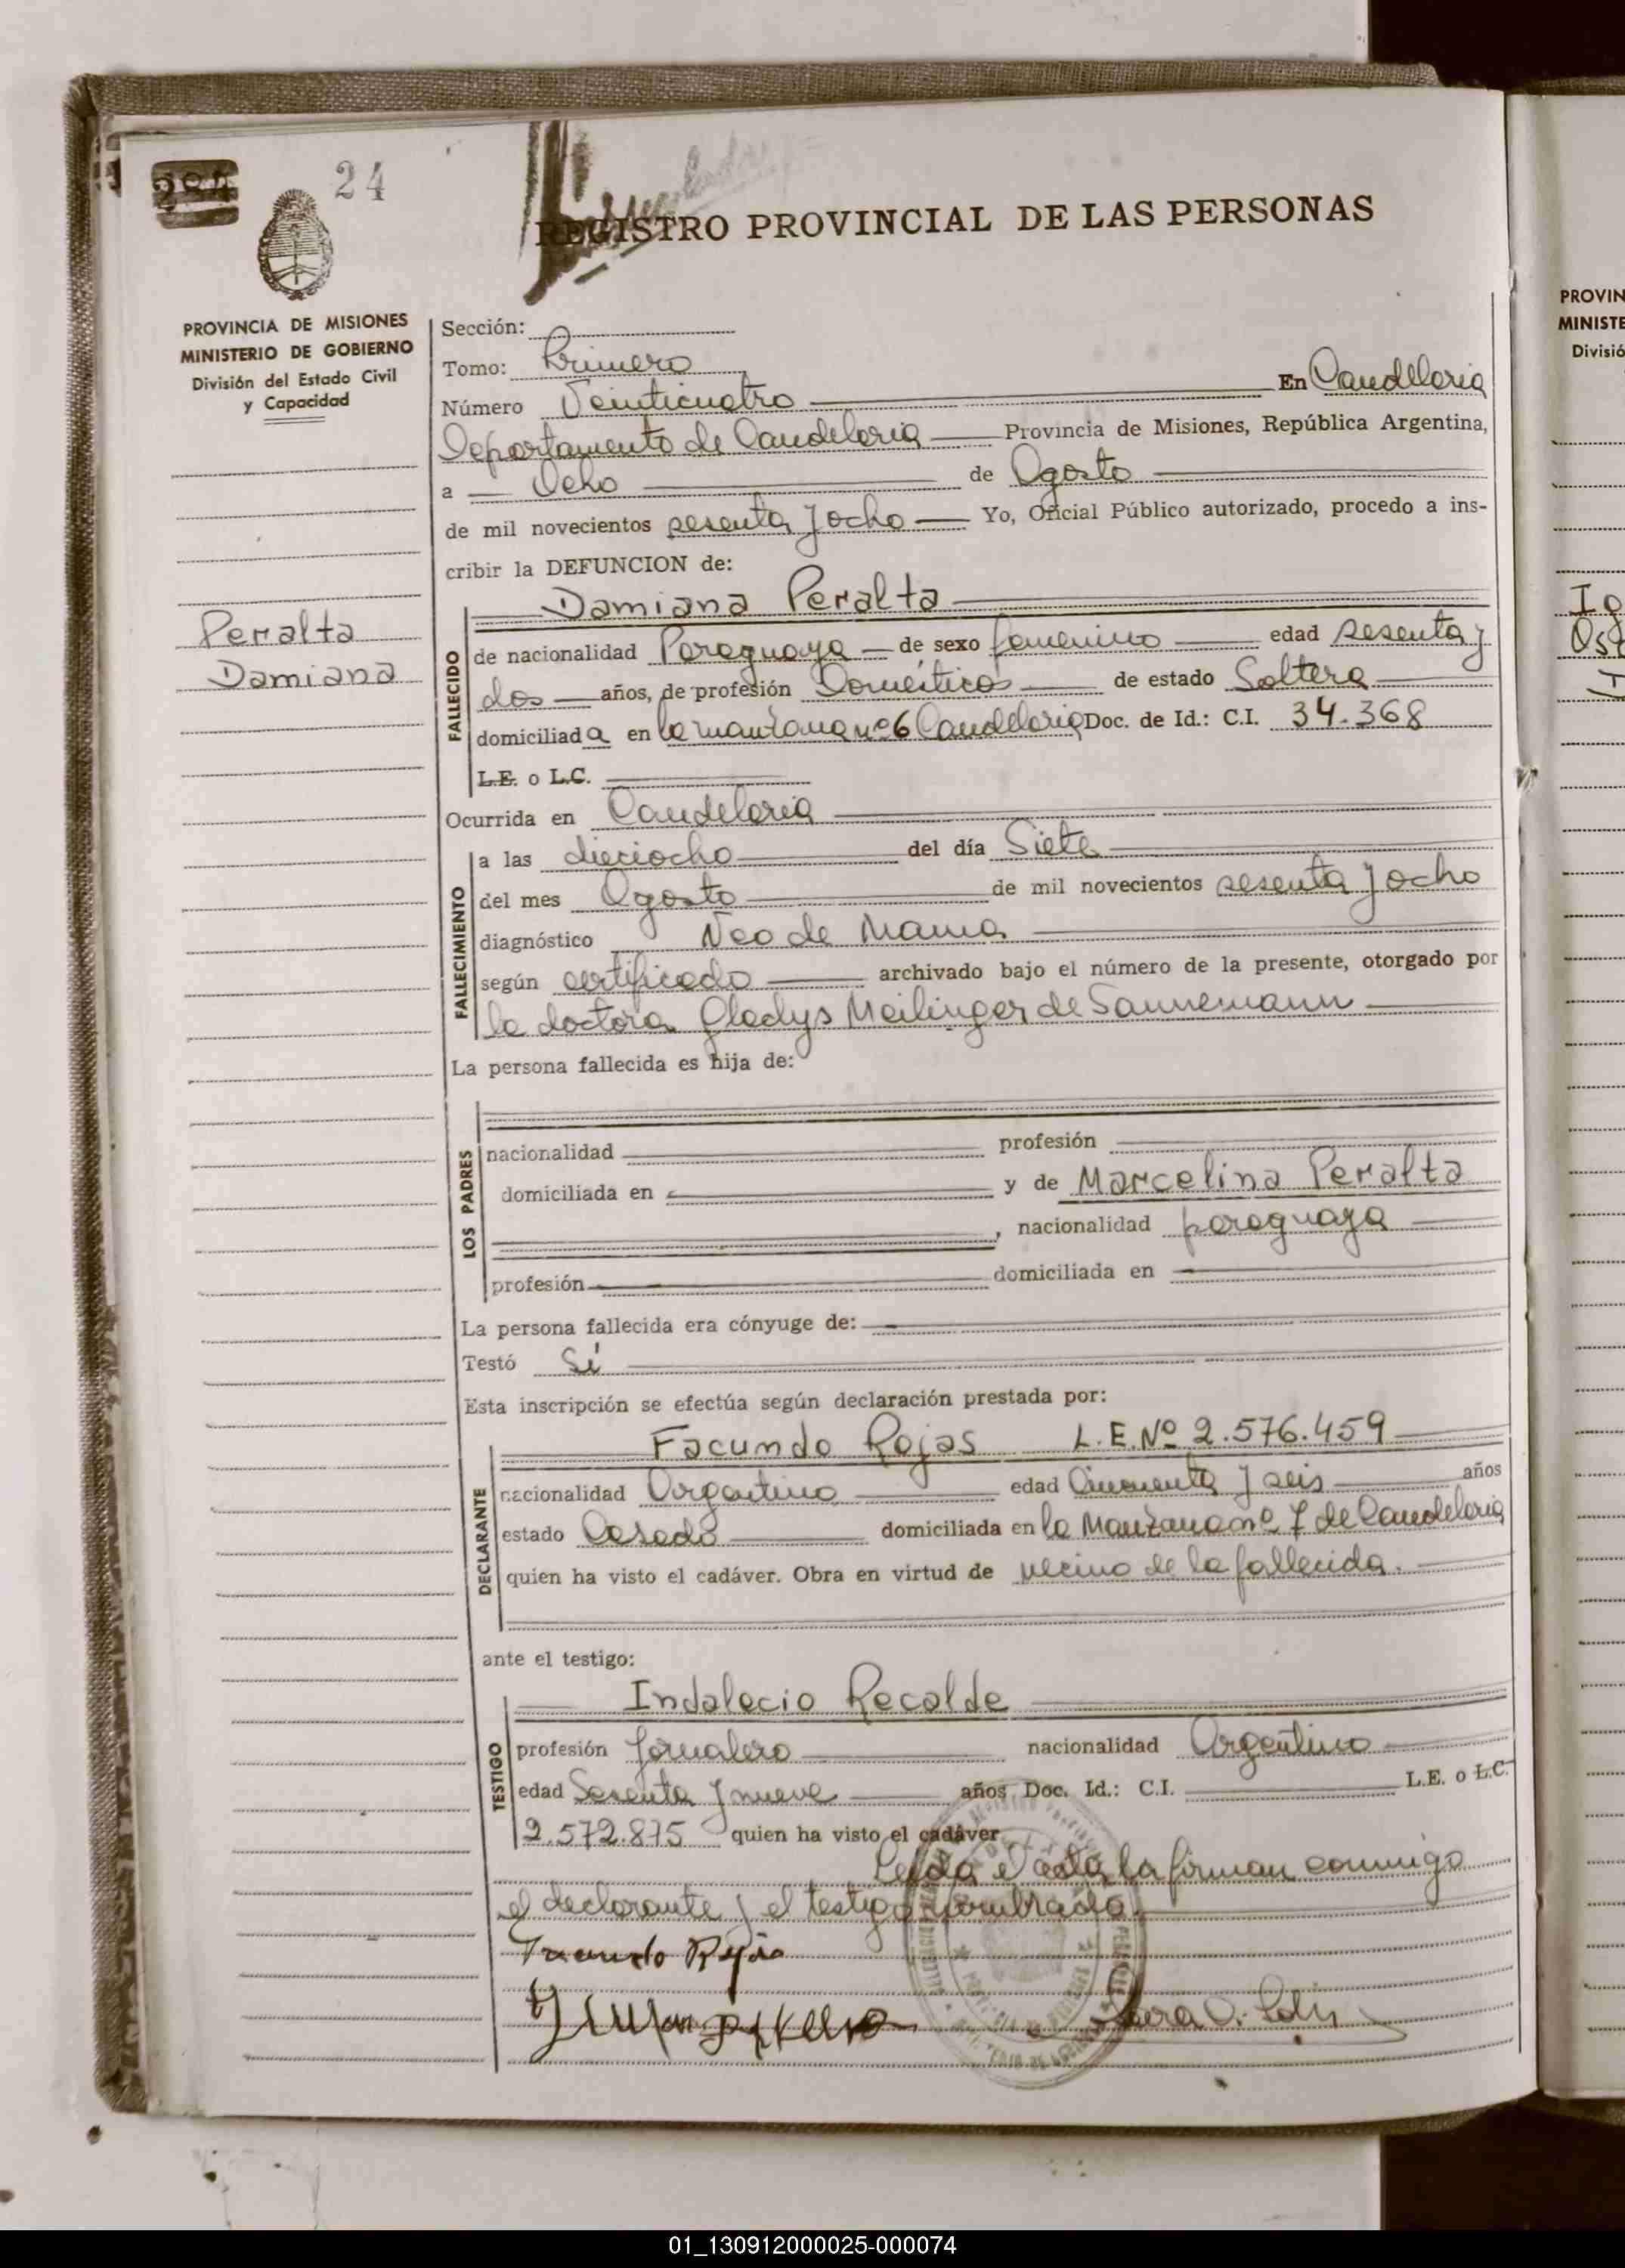 24
REGISTRO PROVINCIAL DE LAS PERSONAS
PROVINCIA DE MISIONES
MINISTERIO DE GOBIERNO
División del Estado Civil
y Capacidad
Peralta
Damiana
Sección:
Tomo: Primero
Número Veinticuatro En Candelaria
Departamento de Candelaria Provincia de Misiones, República Argentina,
a Ocho de Agosto
de mil novecientos sesenta y ocho Yo, Oficial Público autorizado, procedo a ins-
cribir la DEFUNCION de:
FALLECIDO
Damiana Peralta
de nacionalidad Paraguaya de sexo femenino edad sesenta y
dos años, de profesión Domésticos de estado Soltera
domiciliada en la manzana nº 6 Candelaria Doc. de Id.: C.I. 34.368
L.E. o L.C.
Ocurrida en Candelaria
FALLECIMIENTO
a las dieciocho del día Siete
del mes Agosto de mil novecientos sesenta y ocho
diagnóstico Neo de Mama
según certificado archivado bajo el número de la presente, otorgado por
la doctora Gladys Meilinger de Sannemann
La persona fallecida es hija de:
LOS PADRES
nacionalidad profesión
domiciliada en y de Marcelina Peralta
, nacionalidad paraguaya
profesión domiciliada en
La persona fallecida era cónyuge de:
Testó Sí
Esta inscripción se efectúa según declaración prestada por:
DECLARANTE
Facundo Rojas L.E. Nº 2.576.459
nacionalidad Argentino edad Cincuenta y seis años
estado Casado domiciliada en la Manzana nº 7 de Candelaria
quien ha visto el cadáver. Obra en virtud de vecino de la fallecida.
ante el testigo:
TESTIGO
Indalecio Recalde
profesión Jornalero nacionalidad Argentino
edad Sesenta y nueve años, Doc. Id.: C.I. L.E. o L.C.
2.572.875 quien ha visto el cadáver
Leída el acta la firman conmigo
el declarante y el testigo nombrado.
Facundo Rojas
PROVIN
MINISTE
Divisió
01_130912000025-000074